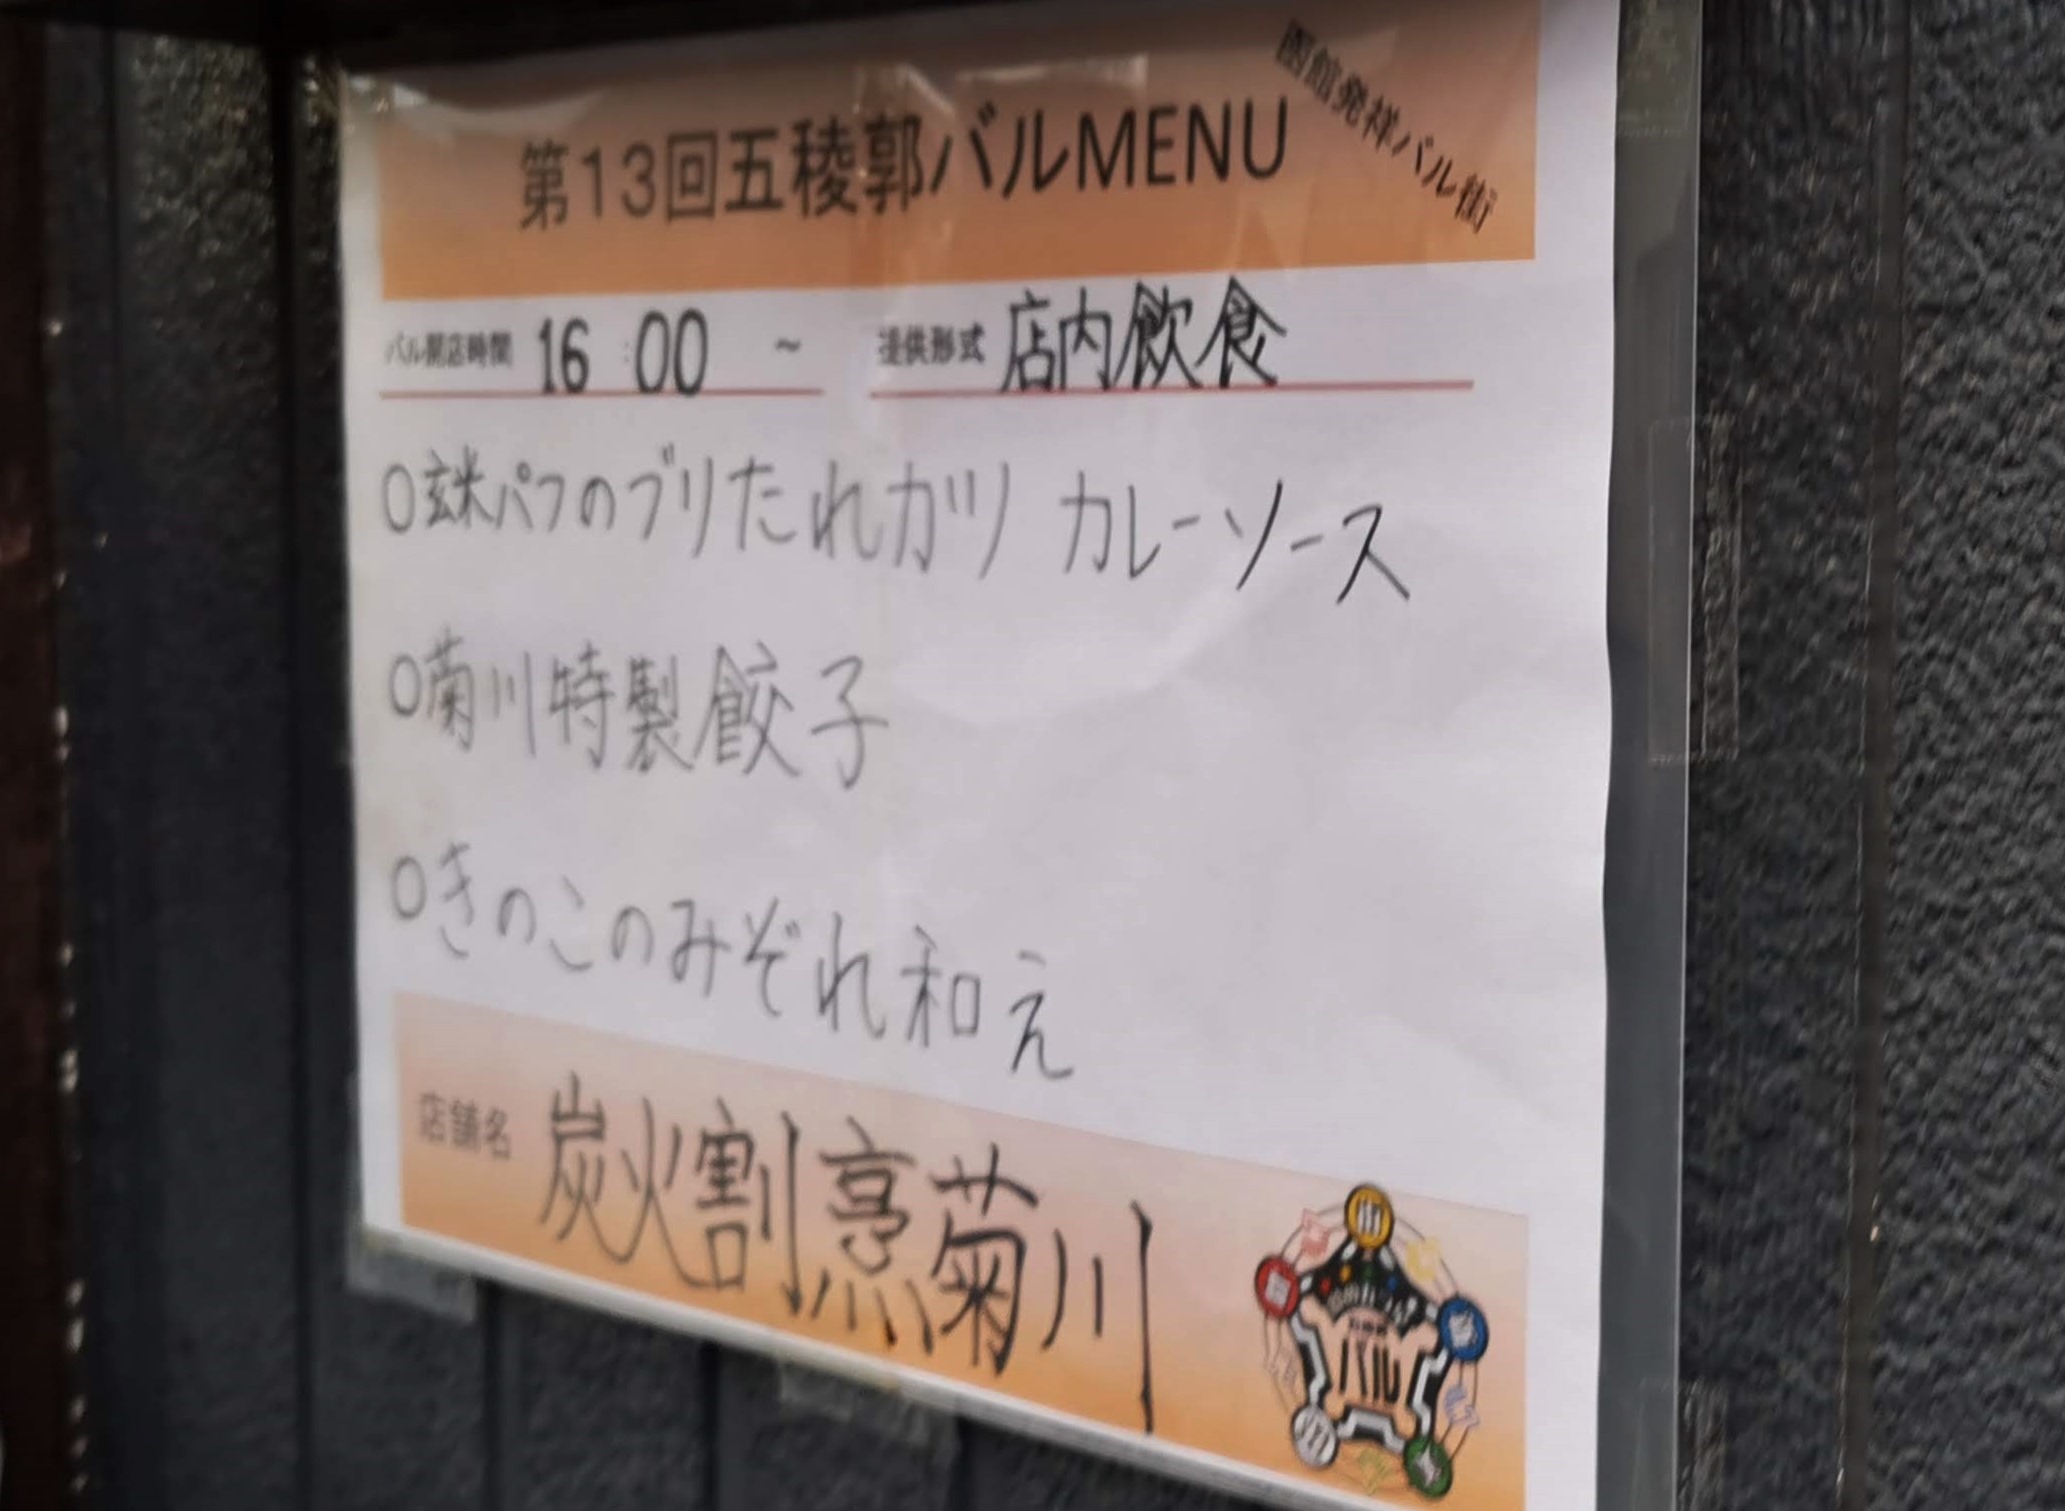 函館発祥バル街
第13回五稜郭バルMENU
バル開店時間 16:00 ~ 提供形式 店内飲食
○玄米パフのブリたれカツ カレーソース
○菊川特製餃子
○きのこのみぞれ和え
店舗名 炭火割烹菊川
街
バル